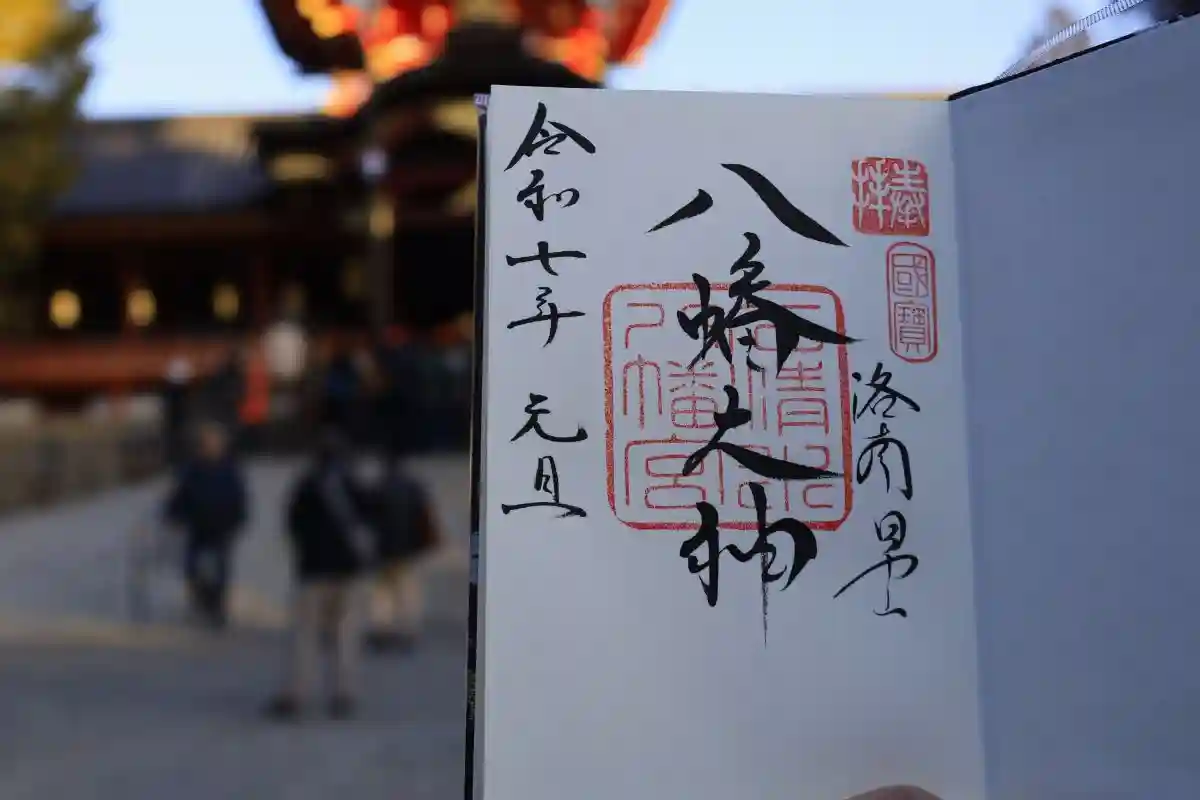 奉拝
國寶
洛南男山
八幡大神
石清水
八幡宮
令和七年 元旦